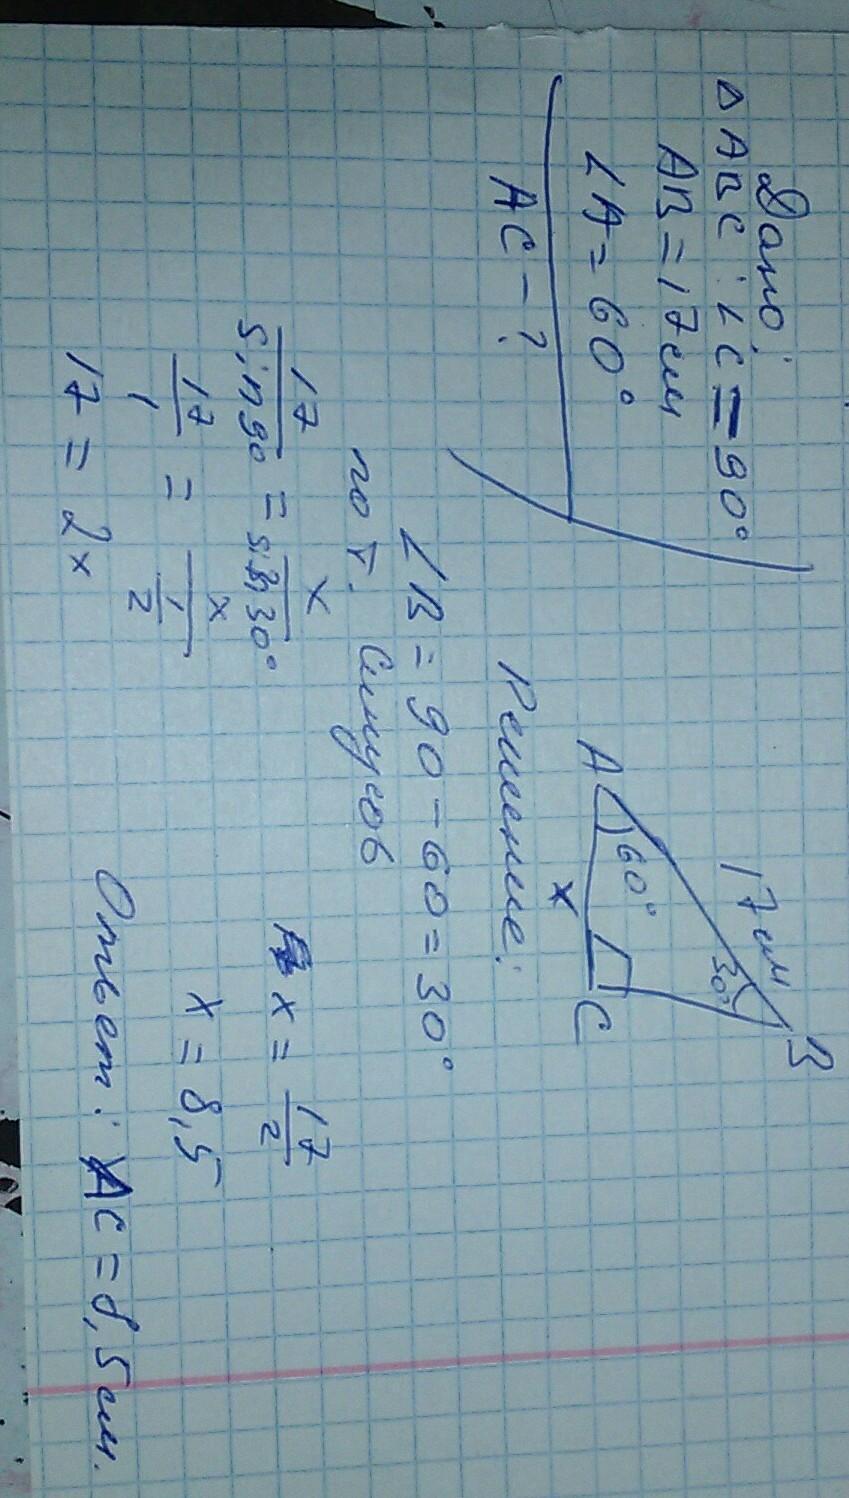 Дано:
△ ABC : ∠C = 90°
AB = 17 см
∠A = 60°
AC - ?
B
17 см
30°
60°
A
x
C
Решение:
∠B = 90 - 60 = 30°
по т. синусов
17/sin 90 = x/sin 30°
17/1 = x/(1/2)
17 = 2x
x = 17/2
x = 8,5
Ответ: AC = 8,5 см.